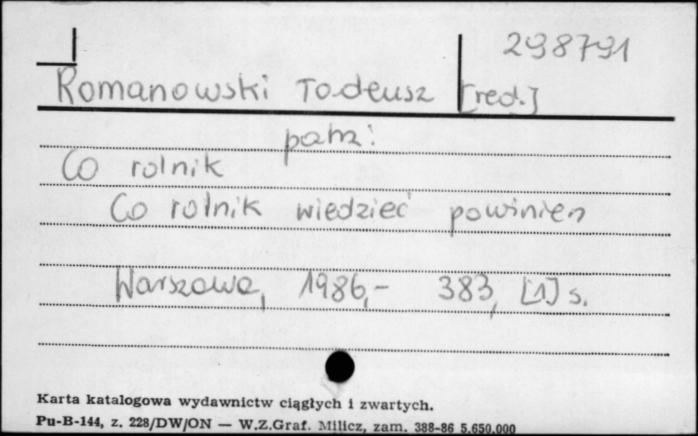 298791
Romanowski Tadeusz [red.]
patrz:
Co rolnik
Co rolnik wiedzieć powinien
Warszawa, 1986,- 383, [1] s.
Karta katalogowa wydawnictw ciągłych i zwartych.
Pu-B-144, z. 228/DW/ON — W.Z.Graf. Milicz, zam. 388-86 5.650.000